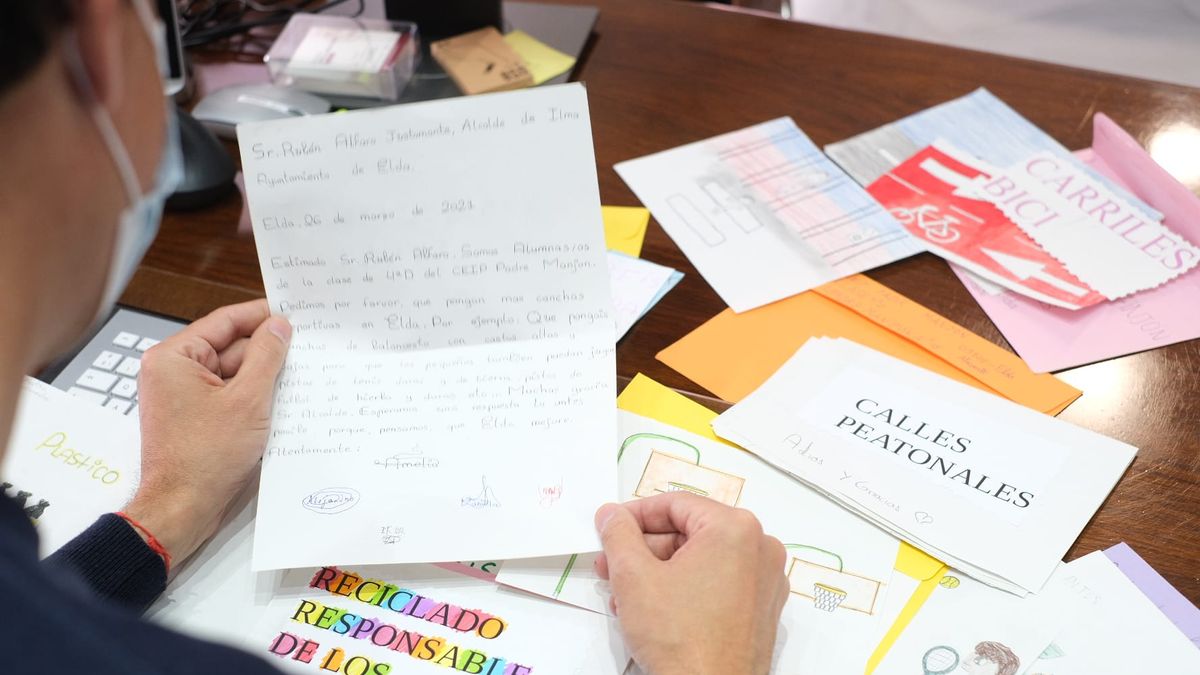 Sr. Rubén Alfaro Justamante, Alcalde de Ilmo
Ayuntamiento de Elda.
Elda, 26 de marzo de 2021
Estimado Sr. Rubén Alfaro. Somos Alumnas/os
de la clase de 4ºD del CEIP Padre Manjon.
Pedimos por favor, que pongan mas canchas
deportivas en Elda. Por ejemplo: Que pongais
canchas de baloncesto con cestas altas y
bajas para que los pequeños tambien puedan jugar
pistas de tenis duras y de hierva, pistas de
futbol de hierba y duras etc... Muchas gracias
Sr. Alcalde. Esperamos una respuesta lo antes
posible porque, pensamos, que Elda mejore.
Atentamente:
Amelia
Alejandro
CARRILES
BICI
CALLES
PEATONALES
Adios y Gracias
Plastico
RECICLADO
RESPONSABLE
DE LOS